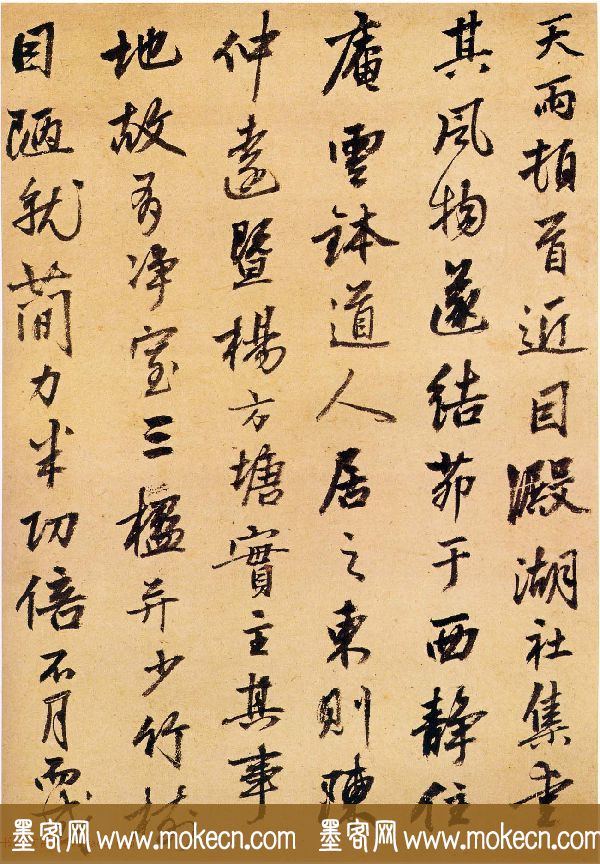 天雨頓首近因澱湖社集
其風物遂結茆于西靜住
庵雲鉢道人居之東則陳
仲遠暨楊方塘實主其事
地故有净室三楹并少竹樹
因陋就簡力半功倍不月而成
墨客网 www.mokecn.com 墨客网 www.mokecn.com